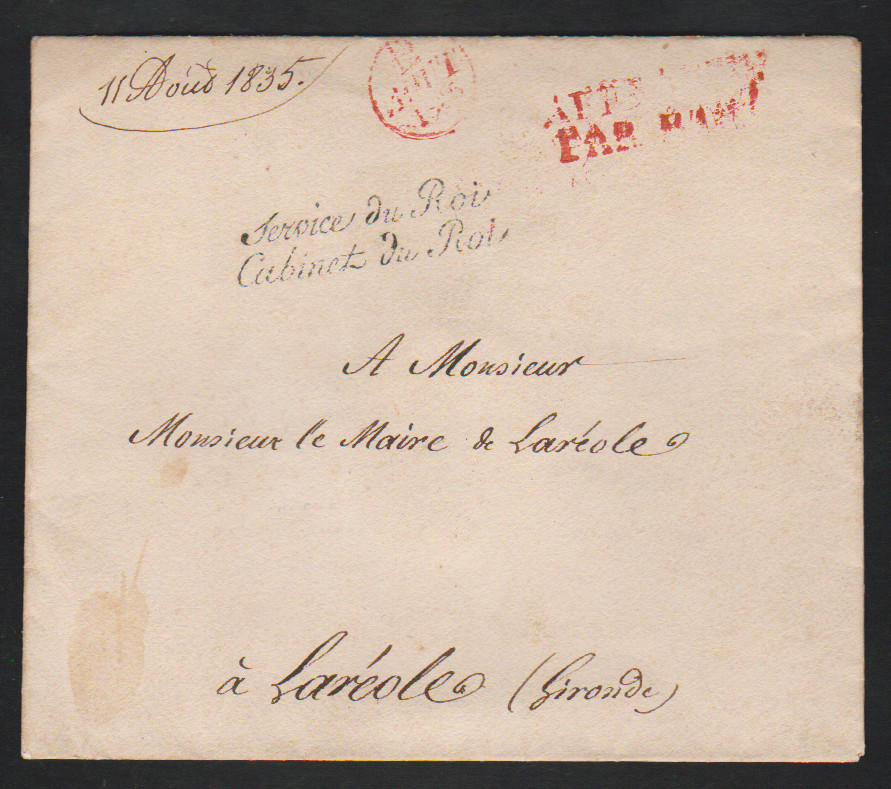 11 Août 1835.
12
AOUT
1835
PAR
Service du Roi
Cabinet du Roi
A Monsieur
Monsieur le Maire de Laréole
à Laréole (Gironde)